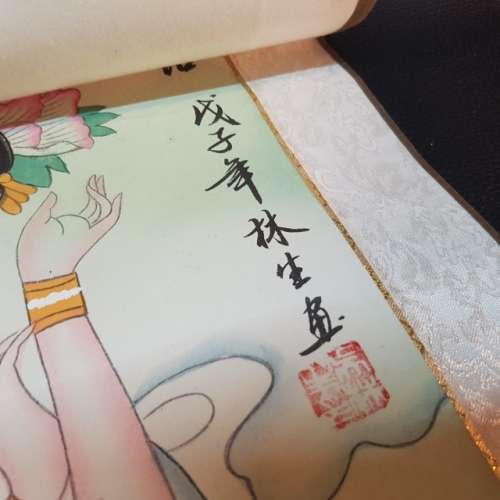 戊子年林生画